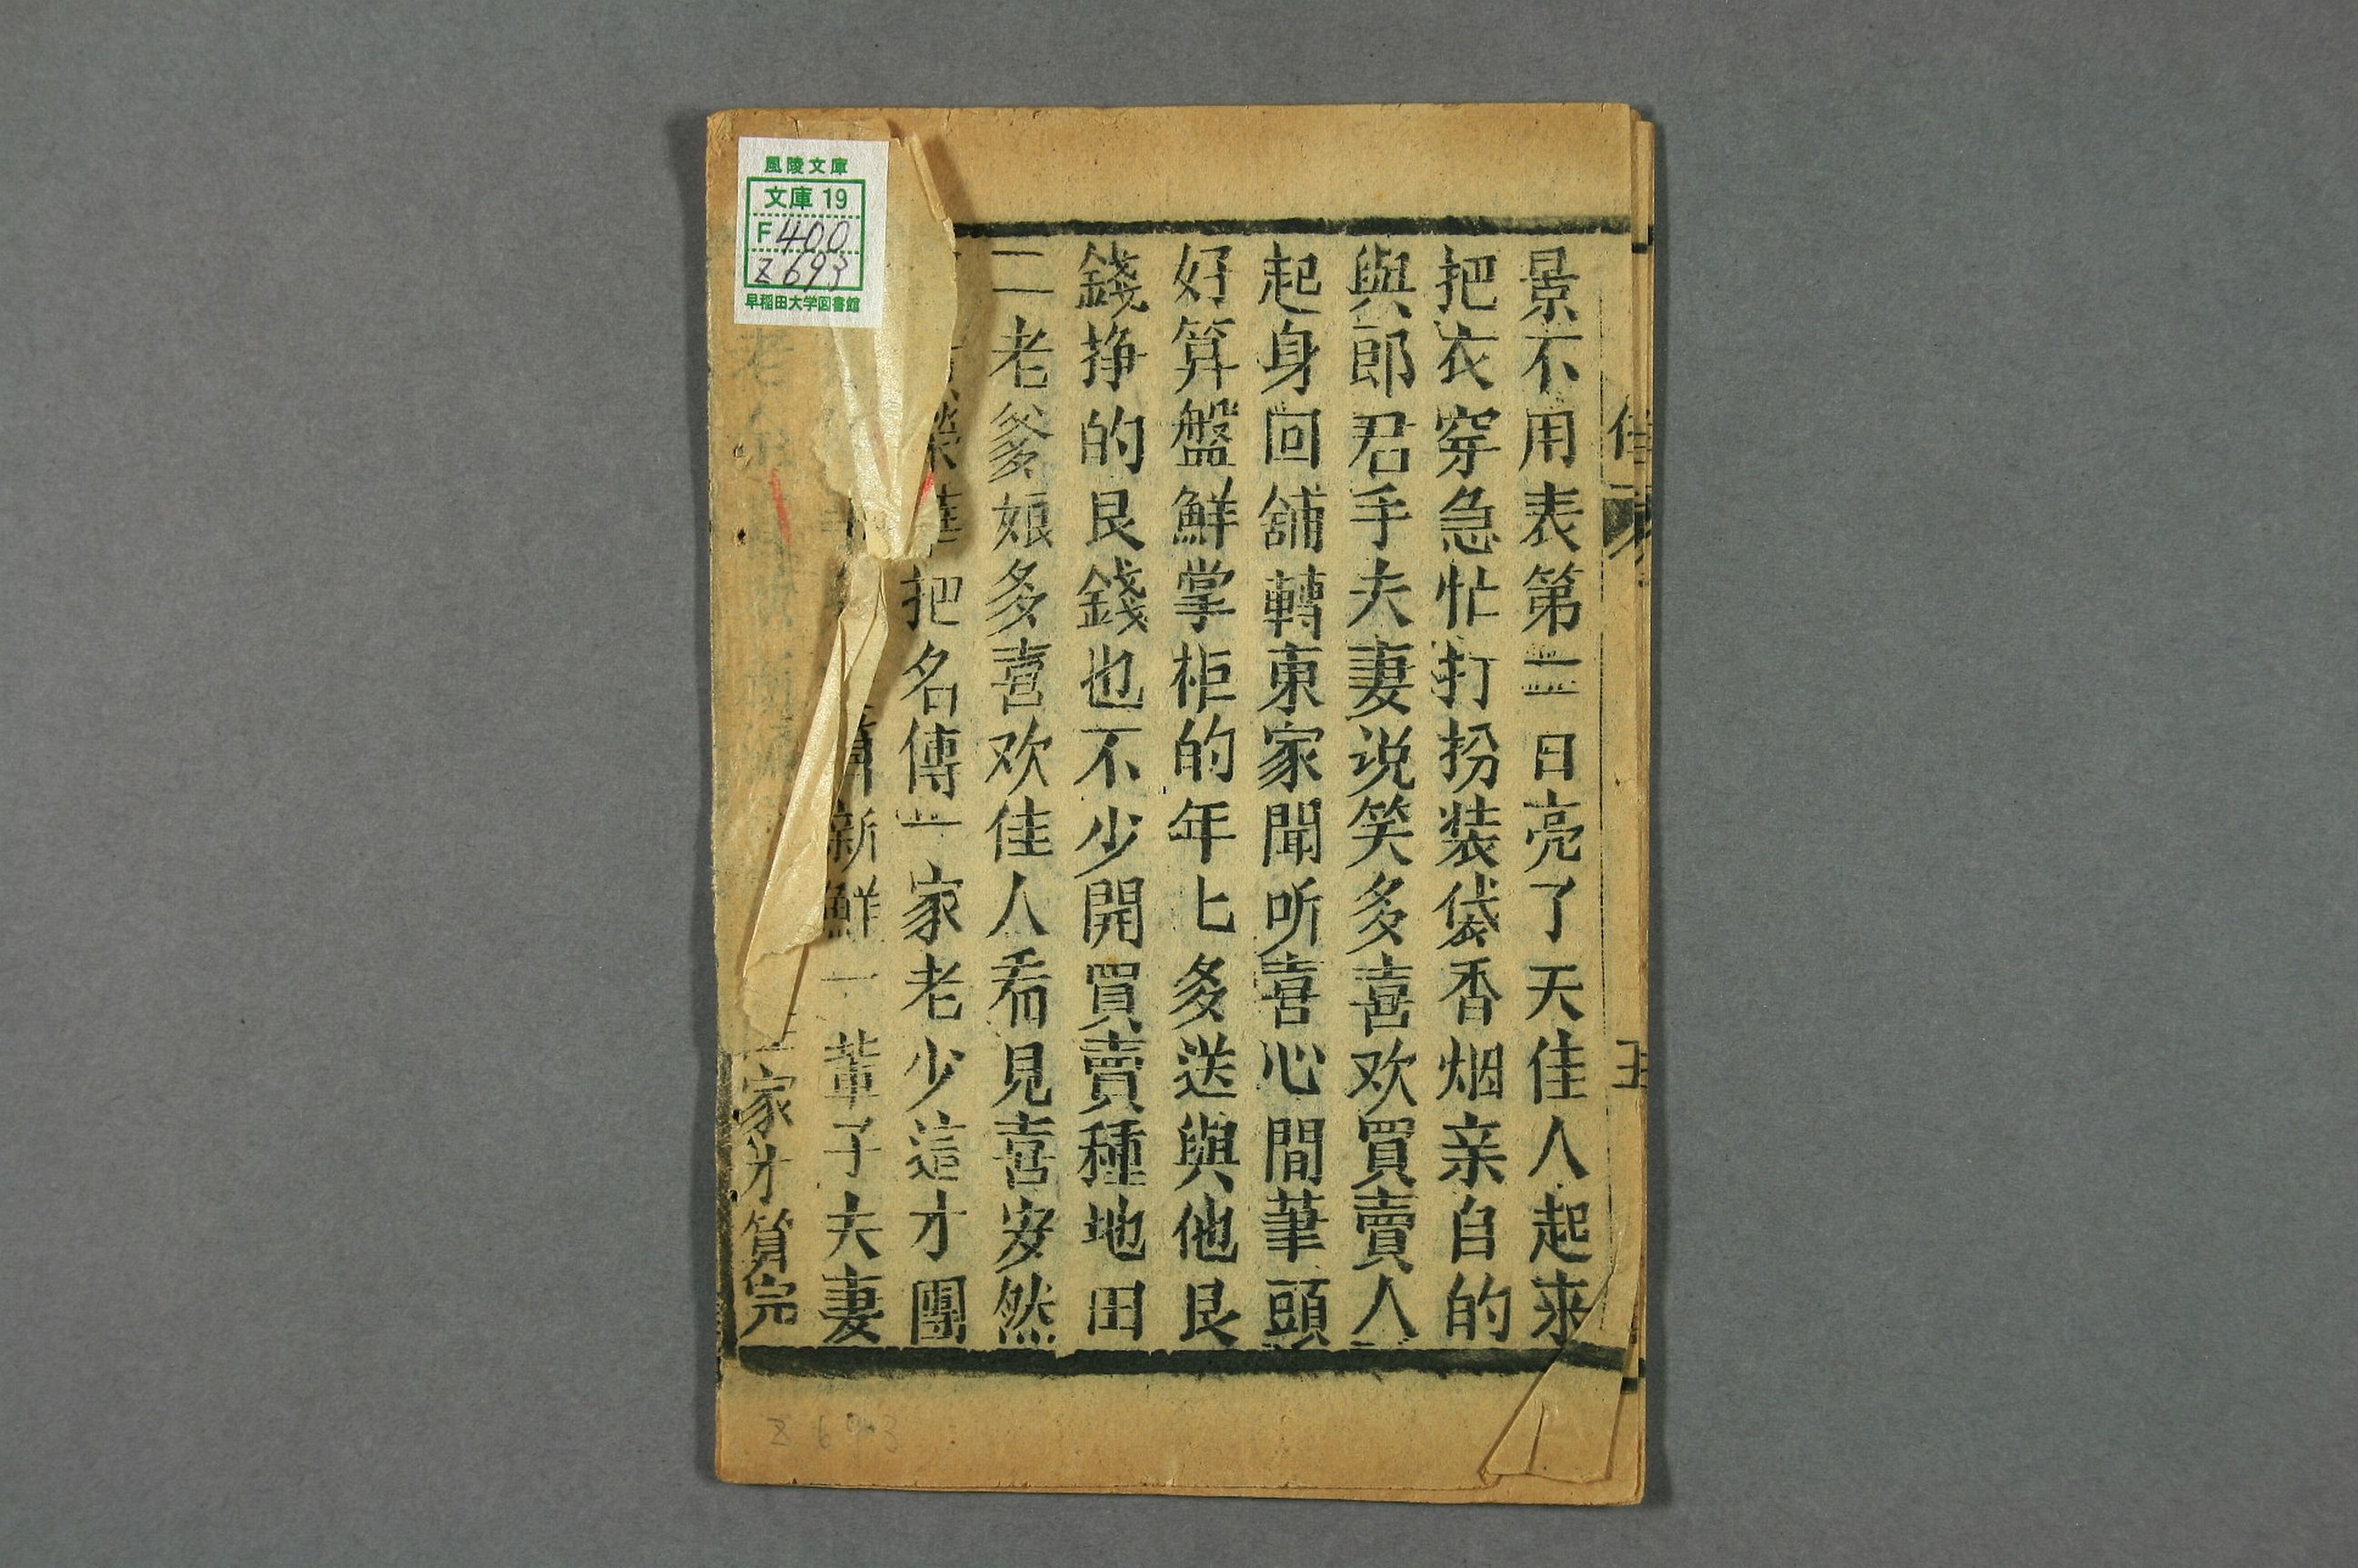 景不用表第二日亮了天佳人起来
把衣穿急忙打扮装袋香烟亲自的
與郎君手夫妻说笑多喜欢買賣人
起身回舖轉東家聞听喜心間筆頭
好算盤鮮掌柜的年七多送與他艮
錢掙的艮錢也不少開買賣種地田
二老爹娘多喜欢佳人看見喜安然
把名傳一家老少這才團
新鮮一輩子夫妻
家才算完
五
風陵文庫
文庫 19
F 400
Z 693
早稲田大学図書館
Z 693